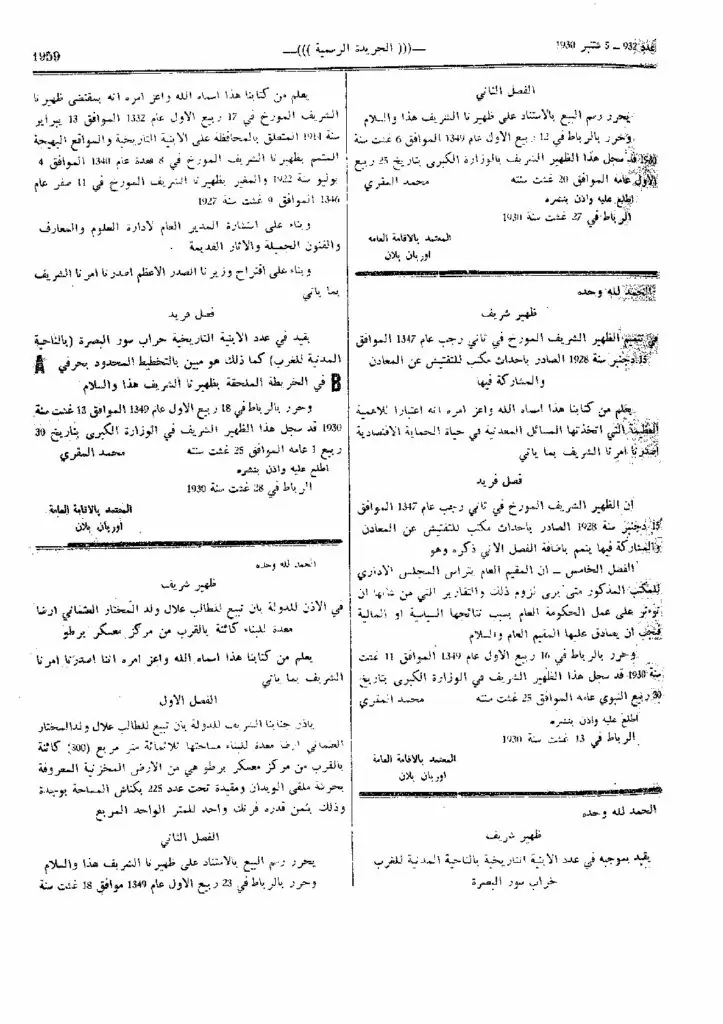 عدد 932 ـ 5 شتنبر 1930
—((( الجريدة الرسمية )))—
1959
الفصل الثاني
يحرر رسم البيع بالاستناد على ظهيرنا الشريف هذا والسلام
وحرر بالرباط في 12 ربيع الاول عام 1349 الموافق 6 غشت سنة
1930 قد سجل هذا الظهير الشريف بالوزارة الكبرى بتاريخ 25 ربيع
الاول عامه الموافق 20 غشت سنته محمد المقري
اطلع عليه واذن بنشره
الرباط في 27 غشت سنة 1930
المعتمد بالاقامة العامة
اوربان بلان
الحمد لله وحده
ظهير شريف
في تتميم الظهير الشريف المورخ في ثاني رجب عام 1347 الموافق
15 دجنبر سنة 1928 الصادر باحداث مكتب للتفتيش عن المعادن
والمشاركة فيها
يعلم من كتابنا هذا اسماه الله واعز امره انه اعتبارا للاهمية
العظيمة التي اتخذتها المسائل المعدنية في حياة الحماية الاقتصادية
اصدرنا امرنا الشريف بما ياتي
فصل فريد
ان الظهير الشريف المورخ في ثاني رجب عام 1347 الموافق
15 دجنبر سنة 1928 الصادر باحداث مكتب للتفتيش عن المعادن
والمشاركة فيها يتمم باضافة الفصل الاتي ذكره وهو
الفصل الخامس ـ ان المقيم العام يتراس المجلس الاداري
للمكتب المذكور متى يرى لزوم ذلك والتقارير التي من شانها ان
توثر على عمل الحكومة العام بسبب نتائجها السياسية او المالية
فيجب ان يصادق عليها المقيم العام والسلام
وحرر بالرباط في 16 ربيع الاول عام 1349 الموافق 11 غشت
سنة 1930 قد سجل هذا الظهير الشريف في الوزارة الكبرى بتاريخ
30 ربيع النبوي عامه الموافق 25 غشت سنته محمد المقري
اطلع عليه واذن بنشره
الرباط في 13 غشت سنة 1930
المعتمد بالاقامة العامة
اوربان بلان
الحمد لله وحده
ظهير شريف
يقيد بموجبه في عدد الابنية التاريخية بالناحية المدنية للغرب
خراب سور البصرة
يعلم من كتابنا هذا اسماه الله واعز امره انه بمقتضى ظهيرنا
الشريف المورخ في 17 ربيع الاول عام 1332 الموافق 13 يبراير
سنة 1914 المتعلق بالمحافظة على الابنية التاريخية والمواقع البهيجة
المتمم بظهيرنا الشريف المورخ في 8 قعدة عام 1340 الموافق 4
يوليو سنة 1922 والمغير بظهيرنا الشريف المورخ في 11 صفر عام
1346 الموافق 9 غشت سنة 1927
وبناء على استشارة المدير العام لادارة العلوم والمعارف
والفنون الجميلة والاثار القديمة
وبناء على اقتراح وزيرنا الصدر الاعظم اصدرنا امرنا الشريف
بما ياتي
فصل فريد
يقيد في عدد الابنية التاريخية خراب سور البصرة (بالناحية
المدنية للغرب) كما ذلك هو مبين بالتخطيط المحدود بحرفي A
B في الخريطة الملحقة بظهيرنا الشريف هذا والسلام
وحرر بالرباط في 18 ربيع الاول عام 1349 الموافق 13 غشت سنة
1930 قد سجل هذا الظهير الشريف في الوزارة الكبرى بتاريخ 30
ربيع 1 عامه الموافق 25 غشت سنته محمد المقري
اطلع عليه واذن بنشره
الرباط في 28 غشت سنة 1930
المعتمد بالاقامة العامة
اوربان بلان
الحمد لله وحده
ظهير شريف
في الاذن للدولة بان تبيع للطالب علال ولد المختار العثماني ارضا
معدة للبناء كائنة بالقرب من مركز معسكر برطو
يعلم من كتابنا هذا اسماه الله واعز امره اننا اصدرنا امرنا
الشريف بما ياتي
الفصل الاول
ياذن جنابنا الشريف للدولة بان تبيع للطالب علال ولد المختار
العثماني ارضا معدة للبناء مساحتها ثلاثمائة متر مربع (300) كائنة
بالقرب من مركز معسكر برطو هي من الارض المخزنية المعروفة
بحرثة ملقى الويدان ومقيدة تحت عدد 225 بكناش المساحة بوجدة
وذلك بثمن قدره فرنك واحد للمتر الواحد المربع
الفصل الثاني
يحرر رسم البيع بالاستناد على ظهيرنا الشريف هذا والسلام
وحرر بالرباط في 23 ربيع الاول عام 1349 موافق 18 غشت سنة